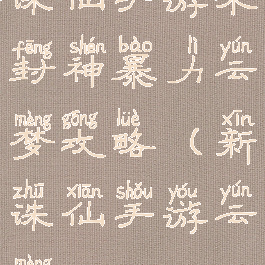 诛仙手游云
fēng shén bào lì yún
封神暴力云
mèng gōng lüè xīn
梦攻略（新
zhū xiān shǒu yóu yún
诛仙手游云
mèng